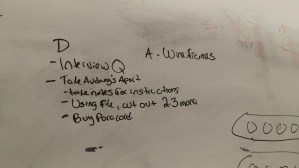 D
- Interview Q
- Take Audrey's Apart
- take notes for instructions
- Using file, cut out 2-3 more
- Buy Paracord
A - Wireframes